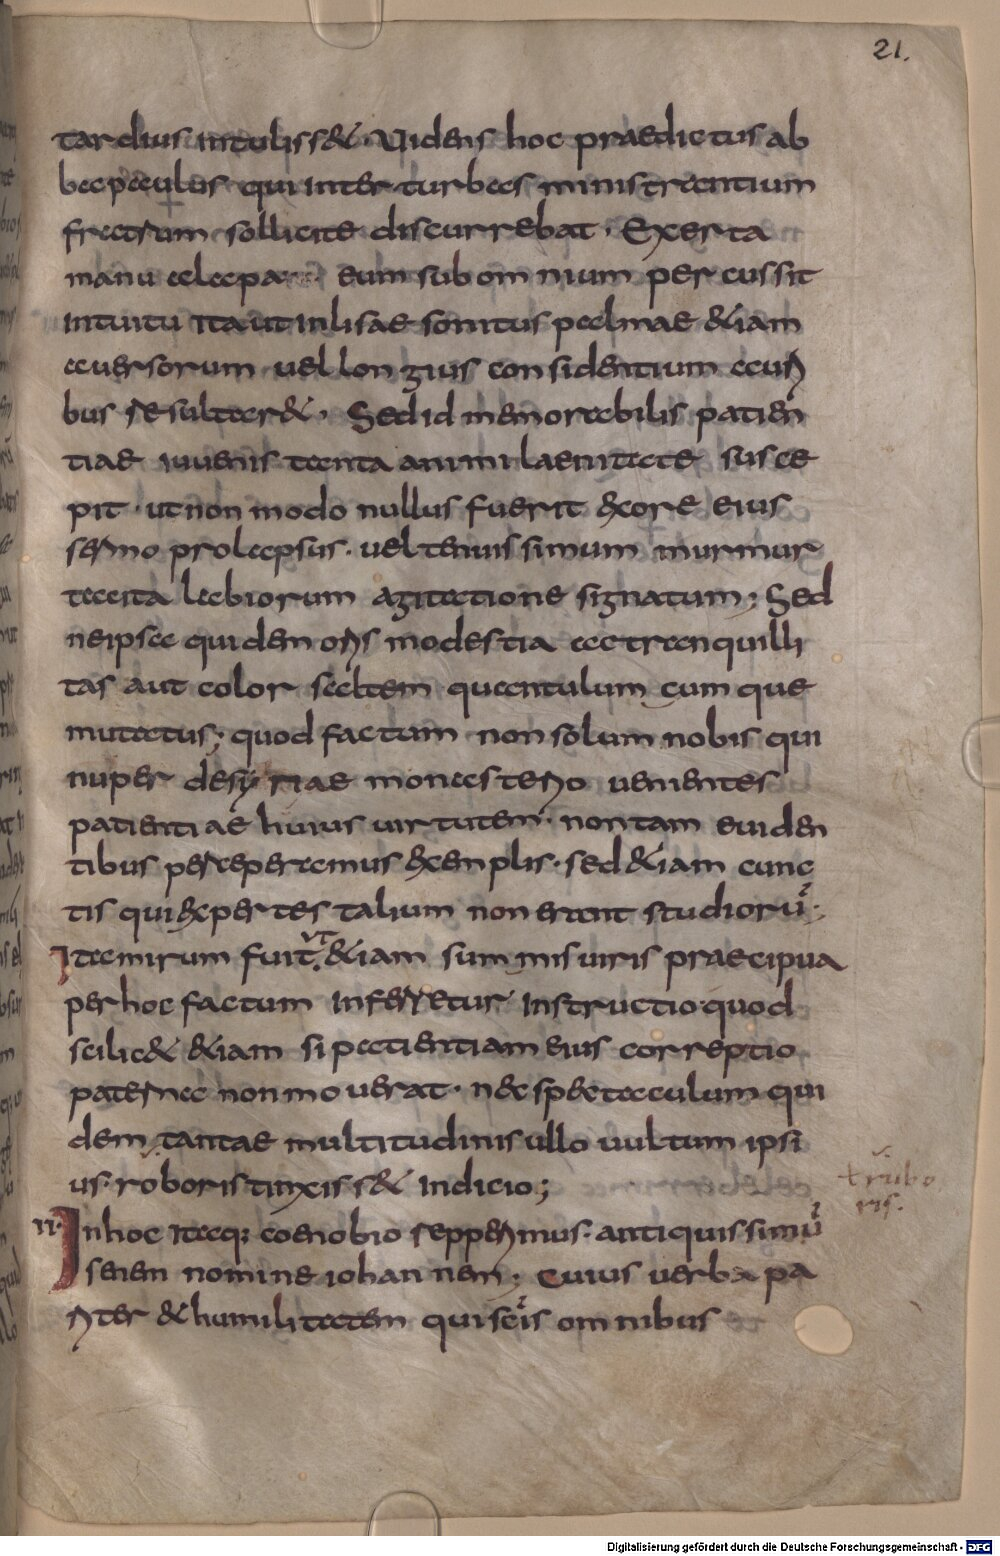 21.
tardius intulisset. Videns hoc praedictus ab
bas paulus qui inter turbas ministrantium
fratrum sollicite discurrebat. Exerta
manu alapa eum sub omnium percussit
intuitu ita ut inlisae sonitus palmae etiam
auersorum uel longius considentium auri
bus resultaret. Sed id memorabilis patien
tiae iuuenis tanta animi laenitate susce
pit. ut non modo nullus fuerit ex ore eius
sermo prolapsus. uel tenuissimum murmur
tacita labiorum agitatione signatum; Sed
ne ipsa quidem oris modestia ac tranquilli
tas aut color saltem quantulumcumque
mutatus; quod factum non solum nobis qui
nuper de syriae monasterio uenientes
patientiae huius uirtutem. non tam euiden
tibus perceperamus exemplis. sed etiam cunc
tis qui expertes talium non erant studiorū;
Ita mirum fuit. ut etiam summis uiris praecipua
per hoc factum inferretur instructio. quod
scilicet etiam si patientiam eius correptio
paterna non mouerat. nec spectaculum qui
dem tantae multitudinis ullo uultum ipsi
us roboris tinxisset indicio;
ł rubo
ris.
II. In hoc itaq; coenobio repperimus. antiquissimū
senem nomine iohannen; Cuius uerba pa
riter et humilitatem qui scīs omnibus
Digitalisierung gefördert durch die Deutsche Forschungsgemeinschaft - DFG